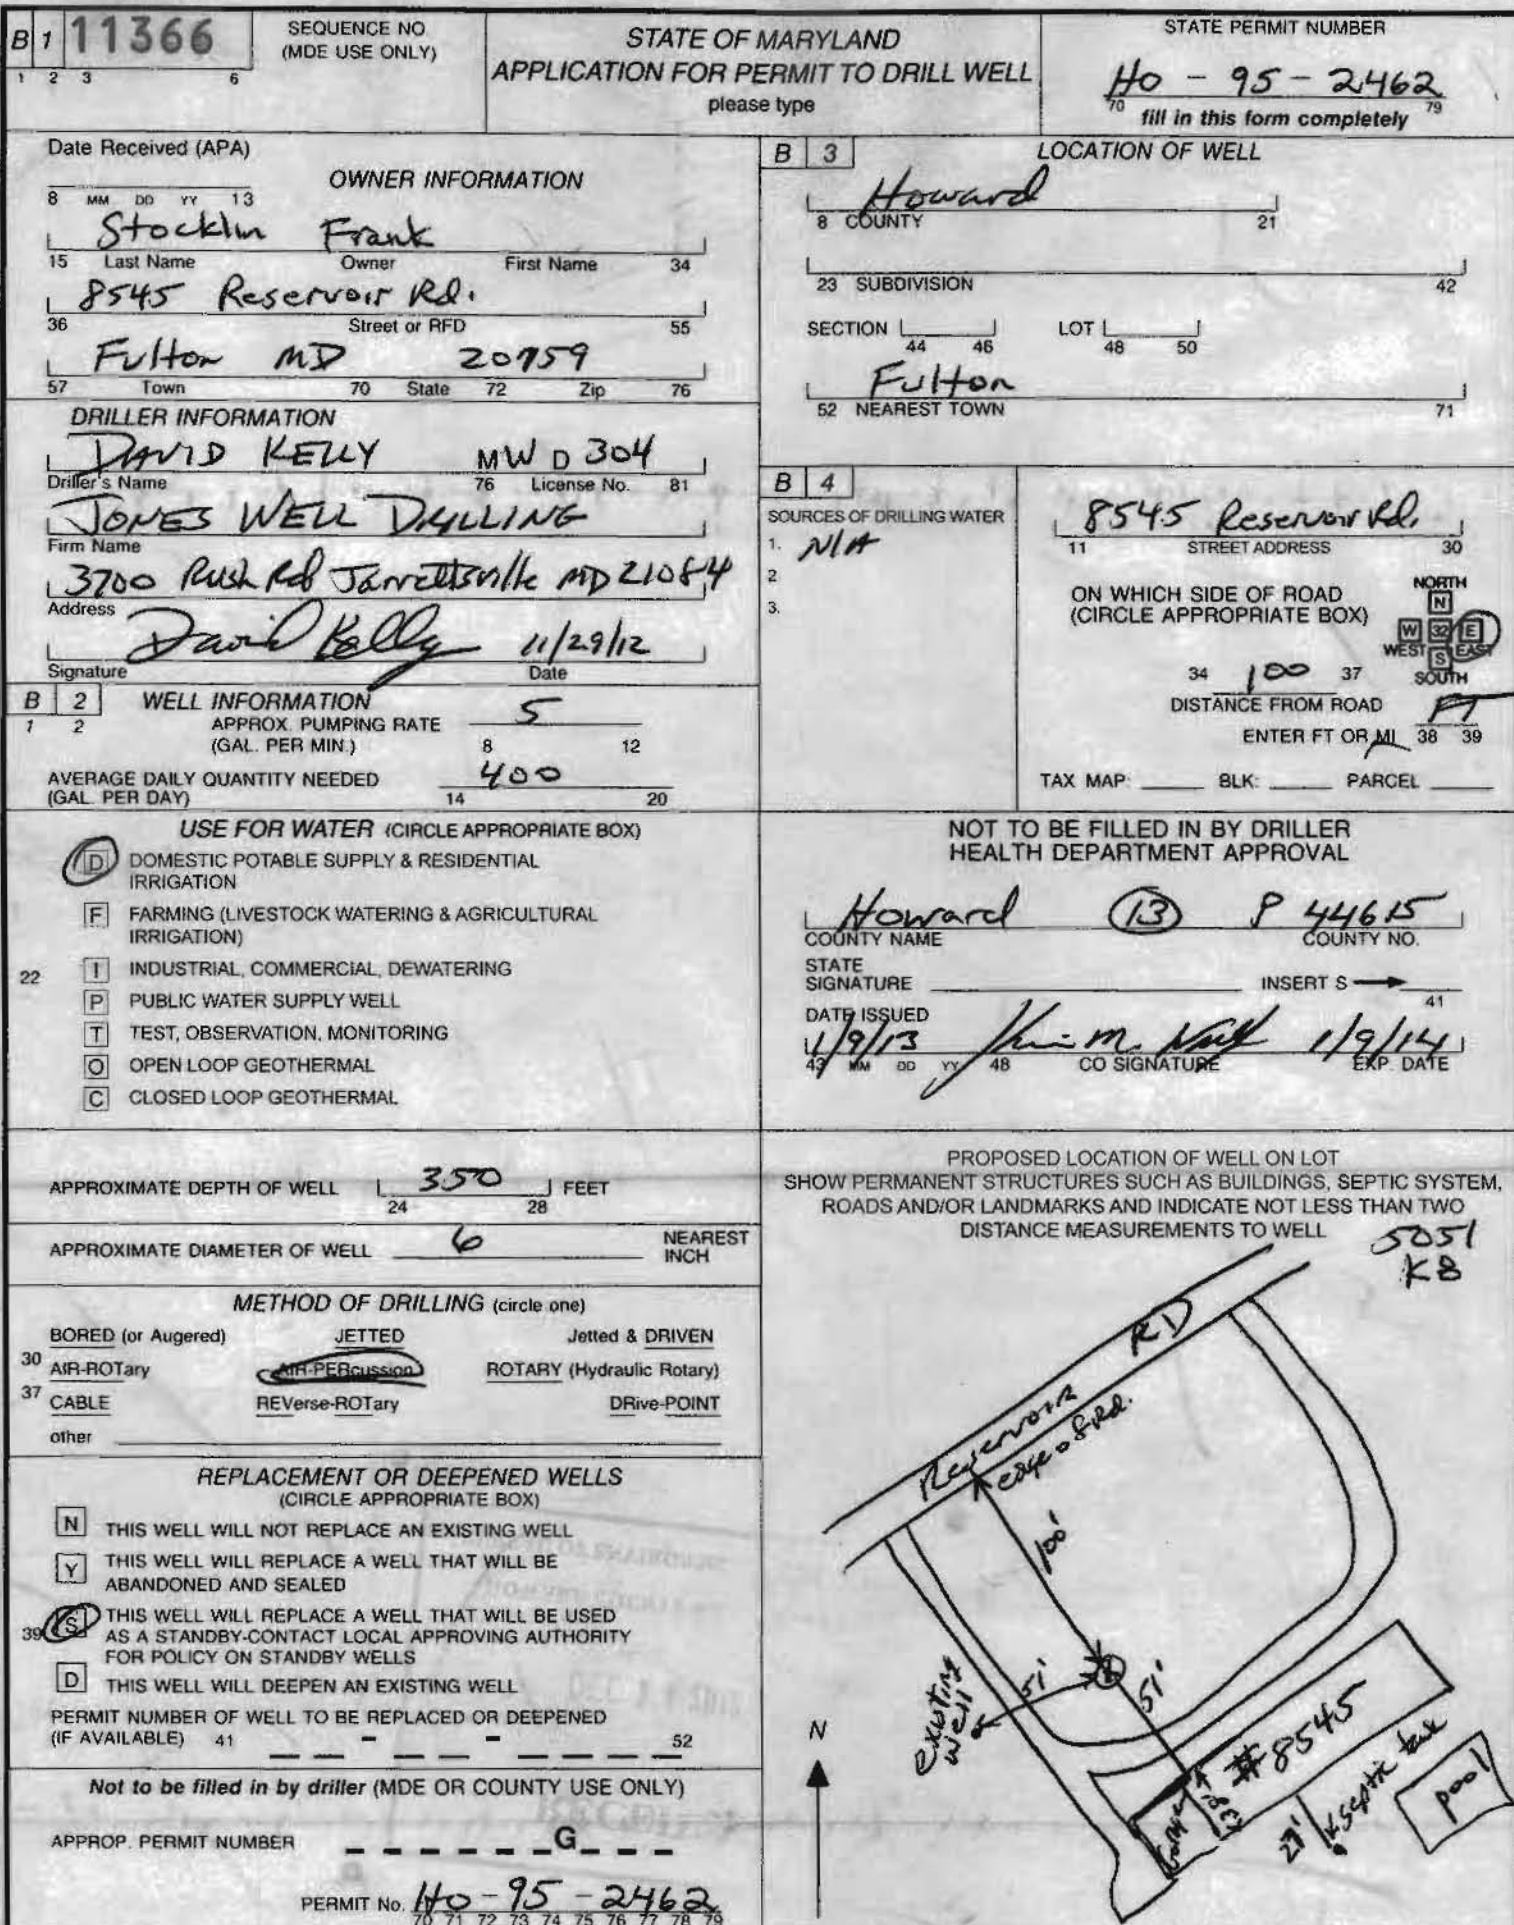 B 1 11366
1 2 3 6
SEQUENCE NO
(MDE USE ONLY)
STATE OF MARYLAND
APPLICATION FOR PERMIT TO DRILL WELL
please type
STATE PERMIT NUMBER
HO - 95 - 2462
70 79
fill in this form completely
Date Received (APA)
8 MM DD YY 13
OWNER INFORMATION
Stocklin Frank
15 Last Name Owner First Name 34
8545 Reservoir Rd.
36 Street or RFD 55
Fulton MD 20759
57 Town 70 State 72 Zip 76
DRILLER INFORMATION
DAVID KELLY MW D 304
Driller's Name 76 License No. 81
JONES WELL DRILLING
Firm Name
3700 Rush Rd Jarrettsville MD 21084
Address
David Kelly 11/29/12
Signature Date
B 2 WELL INFORMATION
1 2
APPROX. PUMPING RATE 5
(GAL. PER MIN.) 8 12
AVERAGE DAILY QUANTITY NEEDED 400
(GAL. PER DAY) 14 20
USE FOR WATER (CIRCLE APPROPRIATE BOX)
D DOMESTIC POTABLE SUPPLY & RESIDENTIAL
IRRIGATION
F FARMING (LIVESTOCK WATERING & AGRICULTURAL
IRRIGATION)
22 I INDUSTRIAL, COMMERCIAL, DEWATERING
P PUBLIC WATER SUPPLY WELL
T TEST, OBSERVATION, MONITORING
O OPEN LOOP GEOTHERMAL
C CLOSED LOOP GEOTHERMAL
APPROXIMATE DEPTH OF WELL 350 FEET
24 28
APPROXIMATE DIAMETER OF WELL 6 NEAREST
INCH
METHOD OF DRILLING (circle one)
BORED (or Augered) JETTED Jetted & DRIVEN
30 AIR-ROTary AIR-PERcussion ROTARY (Hydraulic Rotary)
37 CABLE REVerse-ROTary DRive-POINT
other
REPLACEMENT OR DEEPENED WELLS
(CIRCLE APPROPRIATE BOX)
N THIS WELL WILL NOT REPLACE AN EXISTING WELL
Y THIS WELL WILL REPLACE A WELL THAT WILL BE
ABANDONED AND SEALED
39 S THIS WELL WILL REPLACE A WELL THAT WILL BE USED
AS A STANDBY-CONTACT LOCAL APPROVING AUTHORITY
FOR POLICY ON STANDBY WELLS
D THIS WELL WILL DEEPEN AN EXISTING WELL
PERMIT NUMBER OF WELL TO BE REPLACED OR DEEPENED
(IF AVAILABLE) 41 - - 52
Not to be filled in by driller (MDE OR COUNTY USE ONLY)
APPROP. PERMIT NUMBER G
PERMIT No. HO - 95 - 2462
70 71 72 73 74 75 76 77 78 79
B 3 LOCATION OF WELL
Howard
8 COUNTY 21
23 SUBDIVISION 42
SECTION LOT
44 46 48 50
Fulton
52 NEAREST TOWN 71
B 4
SOURCES OF DRILLING WATER
1. N/A
2
3.
8545 Reservoir Rd.
11 STREET ADDRESS 30
ON WHICH SIDE OF ROAD
(CIRCLE APPROPRIATE BOX)
NORTH
N
W 32 E
WEST S EAST
SOUTH
34 100 37
DISTANCE FROM ROAD FT
ENTER FT OR MI 38 39
TAX MAP: BLK: PARCEL
NOT TO BE FILLED IN BY DRILLER
HEALTH DEPARTMENT APPROVAL
Howard 13 P 44615
COUNTY NAME COUNTY NO.
STATE
SIGNATURE INSERT S
41
DATE ISSUED
1/9/13 1/9/14
43 MM DD YY 48 CO SIGNATURE EXP. DATE
PROPOSED LOCATION OF WELL ON LOT
SHOW PERMANENT STRUCTURES SUCH AS BUILDINGS, SEPTIC SYSTEM,
ROADS AND/OR LANDMARKS AND INDICATE NOT LESS THAN TWO
DISTANCE MEASUREMENTS TO WELL
5051
K8
Reservoir RD
edge of Rd.
100'
existing
well
51'
51'
N
#8545
septic tank
pool